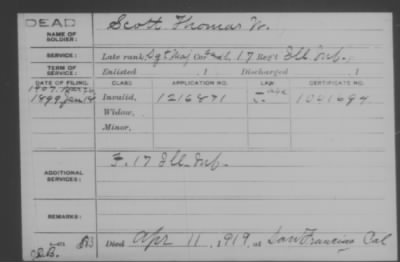 DEAD
NAME OF SOLDIER: Scott Thomas W.
SERVICE: Late rank, Sgt Maj Co. 17 Reg't Ill. Inf.
TERM OF SERVICE: Enlisted , 1 Discharged , 1
DATE OF FILING. CLASS. APPLICATION NO. LAW. CERTIFICATE NO.
1907
1899 Jan 14 Invalid, 1216871 1041694
Widow,
Minor,
ADDITIONAL SERVICES: F. 17 Ill. Inf.
REMARKS:
Died Apr 11, 1919, at San Francisco Cal